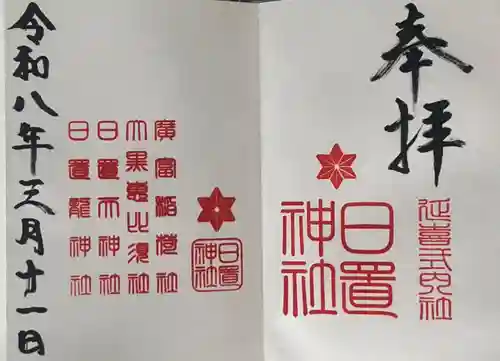 奉拝
延喜式内社
日置
神社
日置
神社
廣富稲荷社
大黒惠比須社
日置天神社
日置龍神社
令和八年三月廿一日